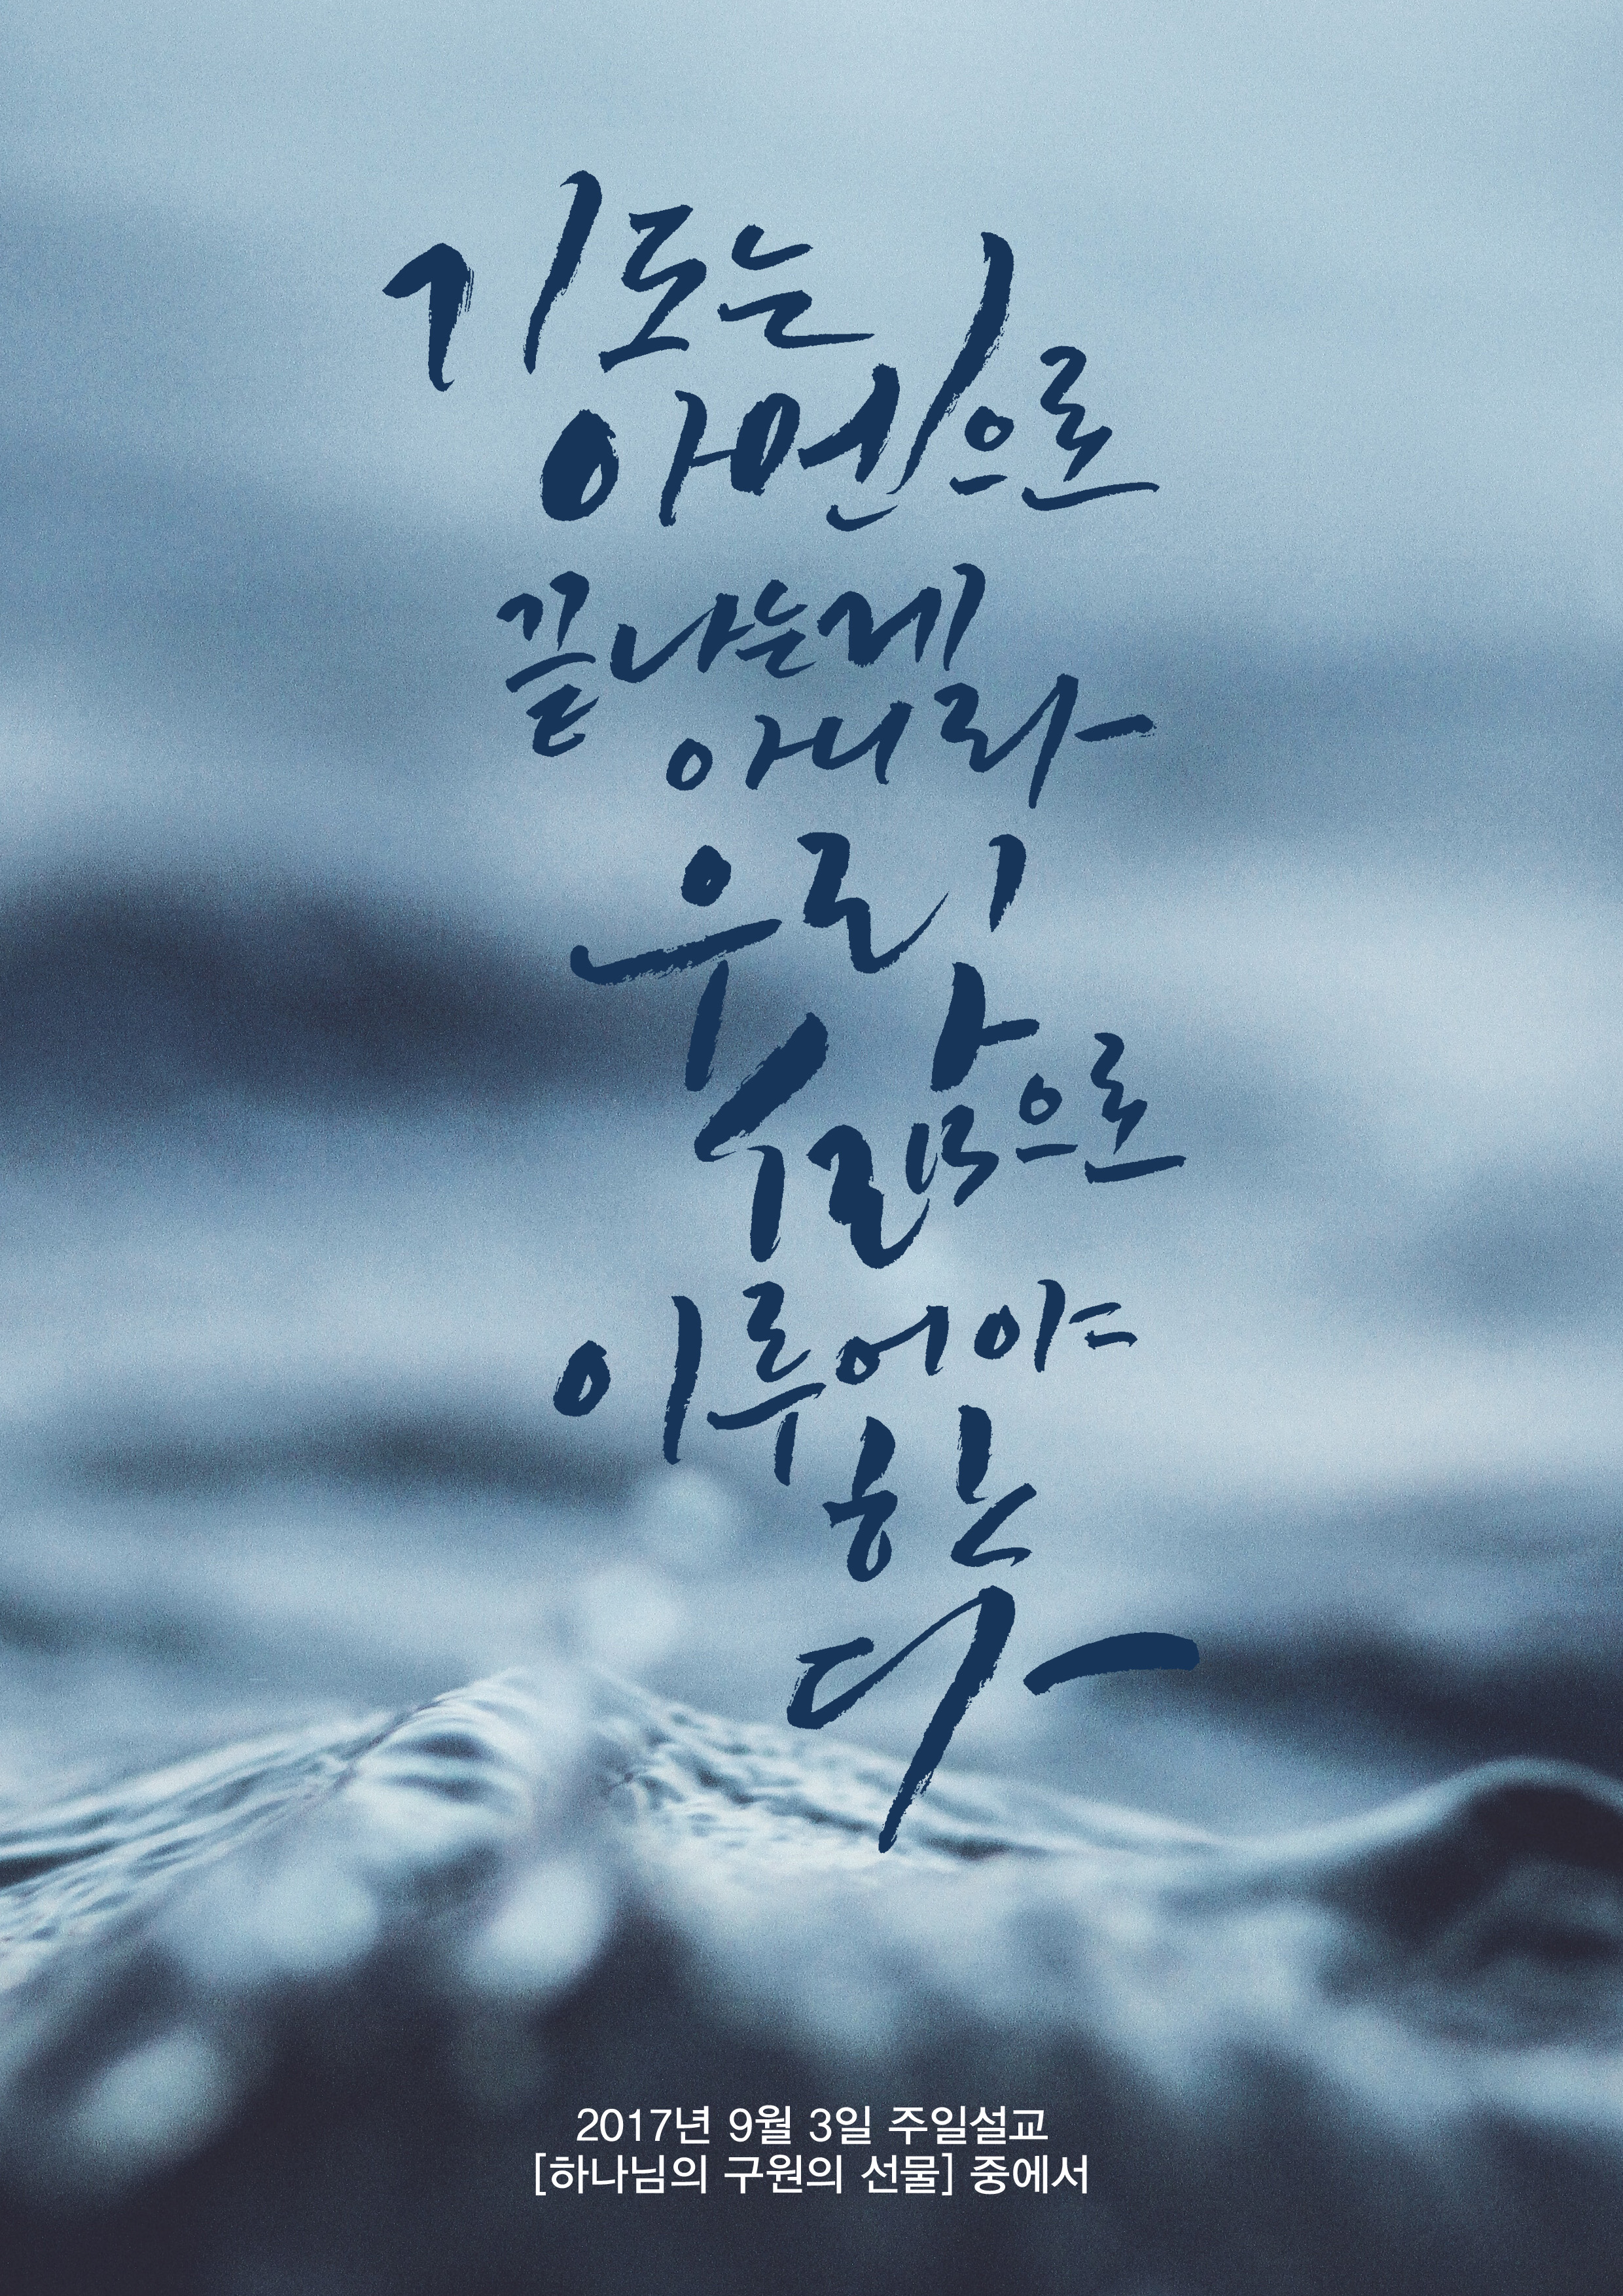 기도는
아멘으로
끝나는게
아니라
우리
삶으로
이루어야
한
다
2017년 9월 3일 주일설교
[하나님의 구원의 선물] 중에서